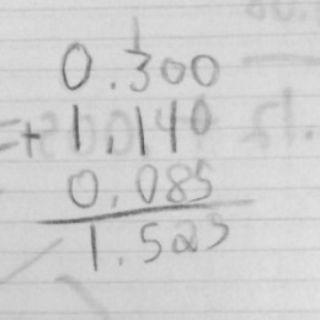 1
0.300
+ 1.140
0.085
1.525